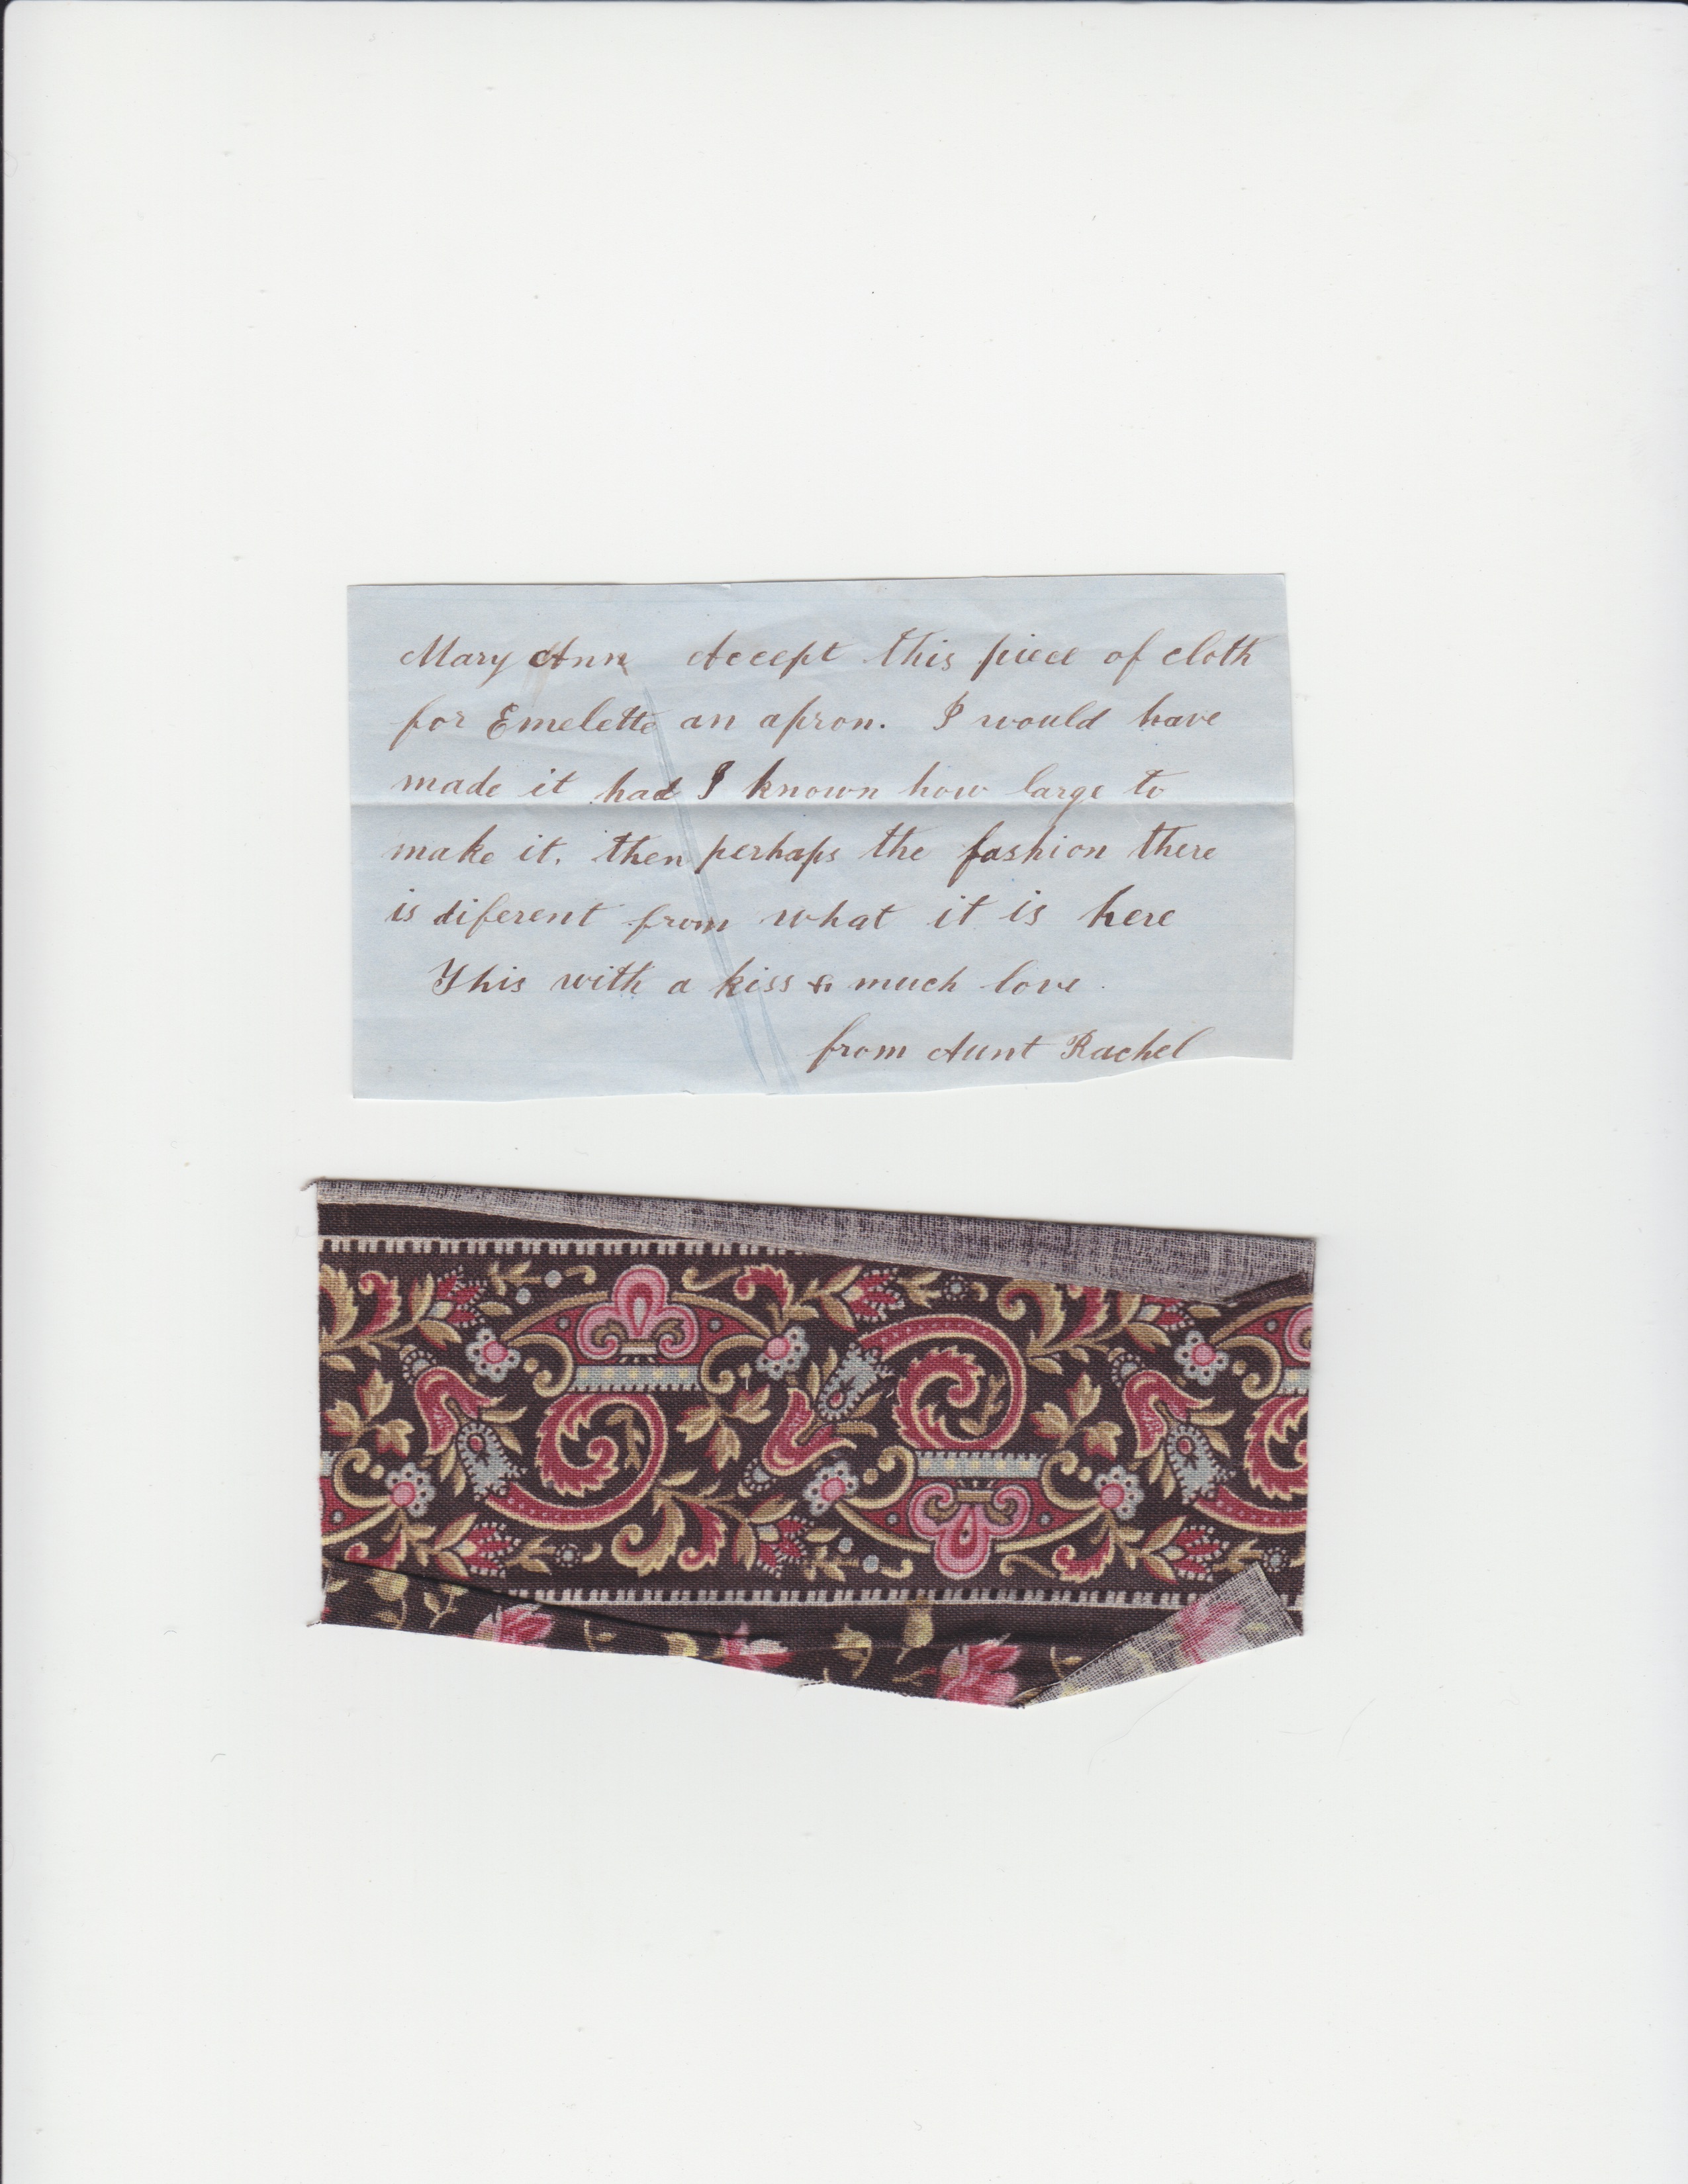 Mary Ann Accept this piece of cloth
for Emelette an apron. I would have
made it had I known how large to
make it. then perhaps the fashion there
is diferent from what it is here
This with a kiss & much love.
from Aunt Rachel